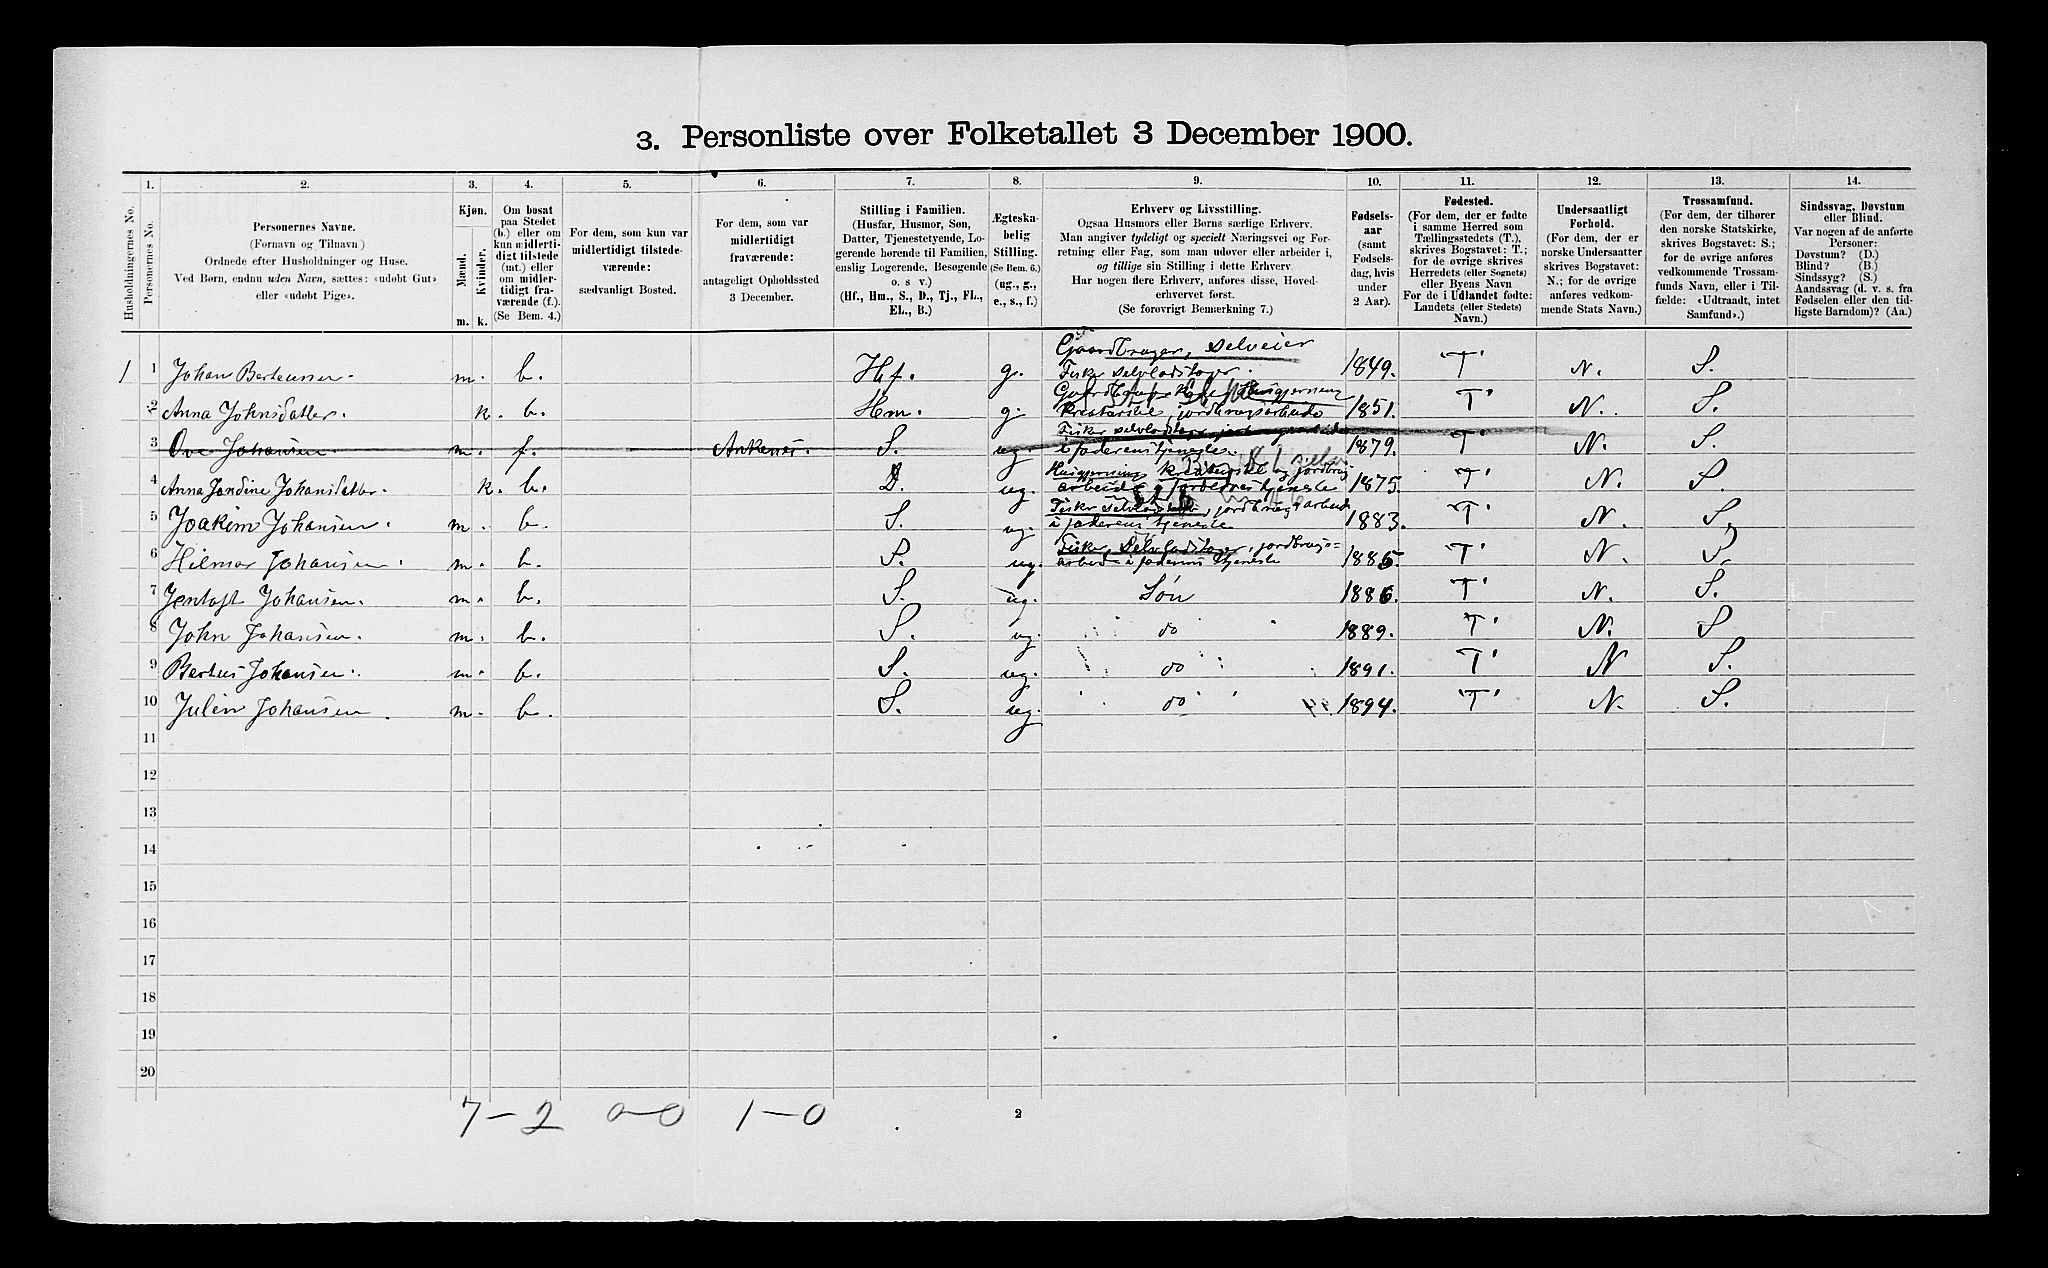 3. Personliste over Folketallet 3 December 1900.
1. 2. 3. 4. 5. 6. 7. 8. 9. 10. 11. 12. 13. 14.
Husholdningernes No.
Personernes No.
Personernes Navne.
(Fornavn og Tilnavn.)
Ordnede efter Husholdninger og Huse.
Ved Børn, endnu uden Navn, sættes: «udøbt Gut»
eller «udøbt Pige».
Kjøn.
Mænd. Kvinder.
m. k.
Om bosat
paa Stedet
(b.) eller om
kun midlerti-
digt tilstede
(mt.) eller
om midler-
tidigt fra-
værende (f.).
(Se Bem. 4.)
For dem, som kun var
midlertidigt tilstede-
værende:
sædvanligt Bosted.
For dem, som var
midlertidigt
fraværende:
antageligt Opholdssted
3 December.
Stilling i Familien.
(Husfar, Husmor, Søn,
Datter, Tjenestetyende, Lo-
gerende hørende til Familien,
enslig Logerende, Besøgende
o. s. v.)
(Hf., Hm., S., D., Tj., FL.,
EL., B.)
Ægteska-
belig
Stilling.
(Se Bem. 6.)
(ug., g.,
e., s., f.)
Erhverv og Livsstilling.
Ogsaa Husmors eller Børns særlige Erhverv.
Man angiver tydeligt og specielt Næringsvei og For-
retning eller Fag, som man udøver eller arbeider i,
og tillige sin Stilling i dette Erhverv.
Har nogen flere Erhverv, anføres disse, Hoved-
erhvervet først.
(Se forøvrigt Bemærkning 7.)
Fødsels-
aar
(samt
Fødsels-
dag, hvis
under
2 Aar).
Fødested.
(For dem, der er fødte
i samme Herred som
Tællingsstedets (T.),
skrives Bogstavet: T.;
for de øvrige skrives
Herredets (eller Sognets)
eller Byens Navn
For de i Udlandet fødte:
Landets (eller Stedets)
Navn.)
Undersaatligt
Forhold.
(For dem, der er
norske Undersaatter
skrives Bogstavet:
N.; for de øvrige
anføres vedkom-
mende Stats Navn.)
Trossamfund.
(For dem, der tilhører
den norske Statskirke,
skrives Bogstavet: S.;
for de øvrige anføres
vedkommende Trossam-
funds Navn, eller i Til-
fælde: «Udtraadt, intet
Samfund».)
Sindssvag, Døvstum
eller Blind.
Var nogen af de anførte
Personer:
Døvstum? (D.)
Blind? (B.)
Sindssyg? (S.)
Aandssvag (d. v. s. fra
Fødselen eller den tid-
ligste Barndom)? (Aa.)
Gaardbruger, selveier
1 1 Johan Berteussen. m. b. Hf. g. Fisker selvlodstager. 1849. T. N. S.
2 Anna Johnsdatter. k. b. Hm. g. Husgjerning
kreaturstel, jordbrugsarbeide 1851. T. N. S.
Fisker selvlodstager, jordbrugsarbeide
3 Ove Johansen m. f. Ankenes. S. ug. i faderens tjeneste. 1879. T. N. S.
Husgjerning kreaturstel og jordbrug
4 Anna Jondine Johansdatter. k. b. D. ug. arbeide i faderens tjeneste 1875. T. N. S.
Fisker selvlodstager, jordbrugarbeide
5 Joakim Johansen. m. b. S. ug. i faderens tjeneste 1883. T. N. S.
Fisker, selvlodstager, jordbrugs=
6 Hilmar Johansen. m. b. S. ug. arbeid i faderens tjeneste 1885. T. N. S.
7 Jentoft Johansen. m. b. S. ug. Søn 1886. T. N. S.
8 John Johansen. m. b. S. ug. do 1889. T. N. S
9 Bertus Johansen. m. b. S. ug. do 1891. T. N S.
10 Julin Johansen. m. b. S. ug. do 1894. T. N. S.
11
12
13
14
15
16
17
18
19
20
7-2 0-0 1-0 2